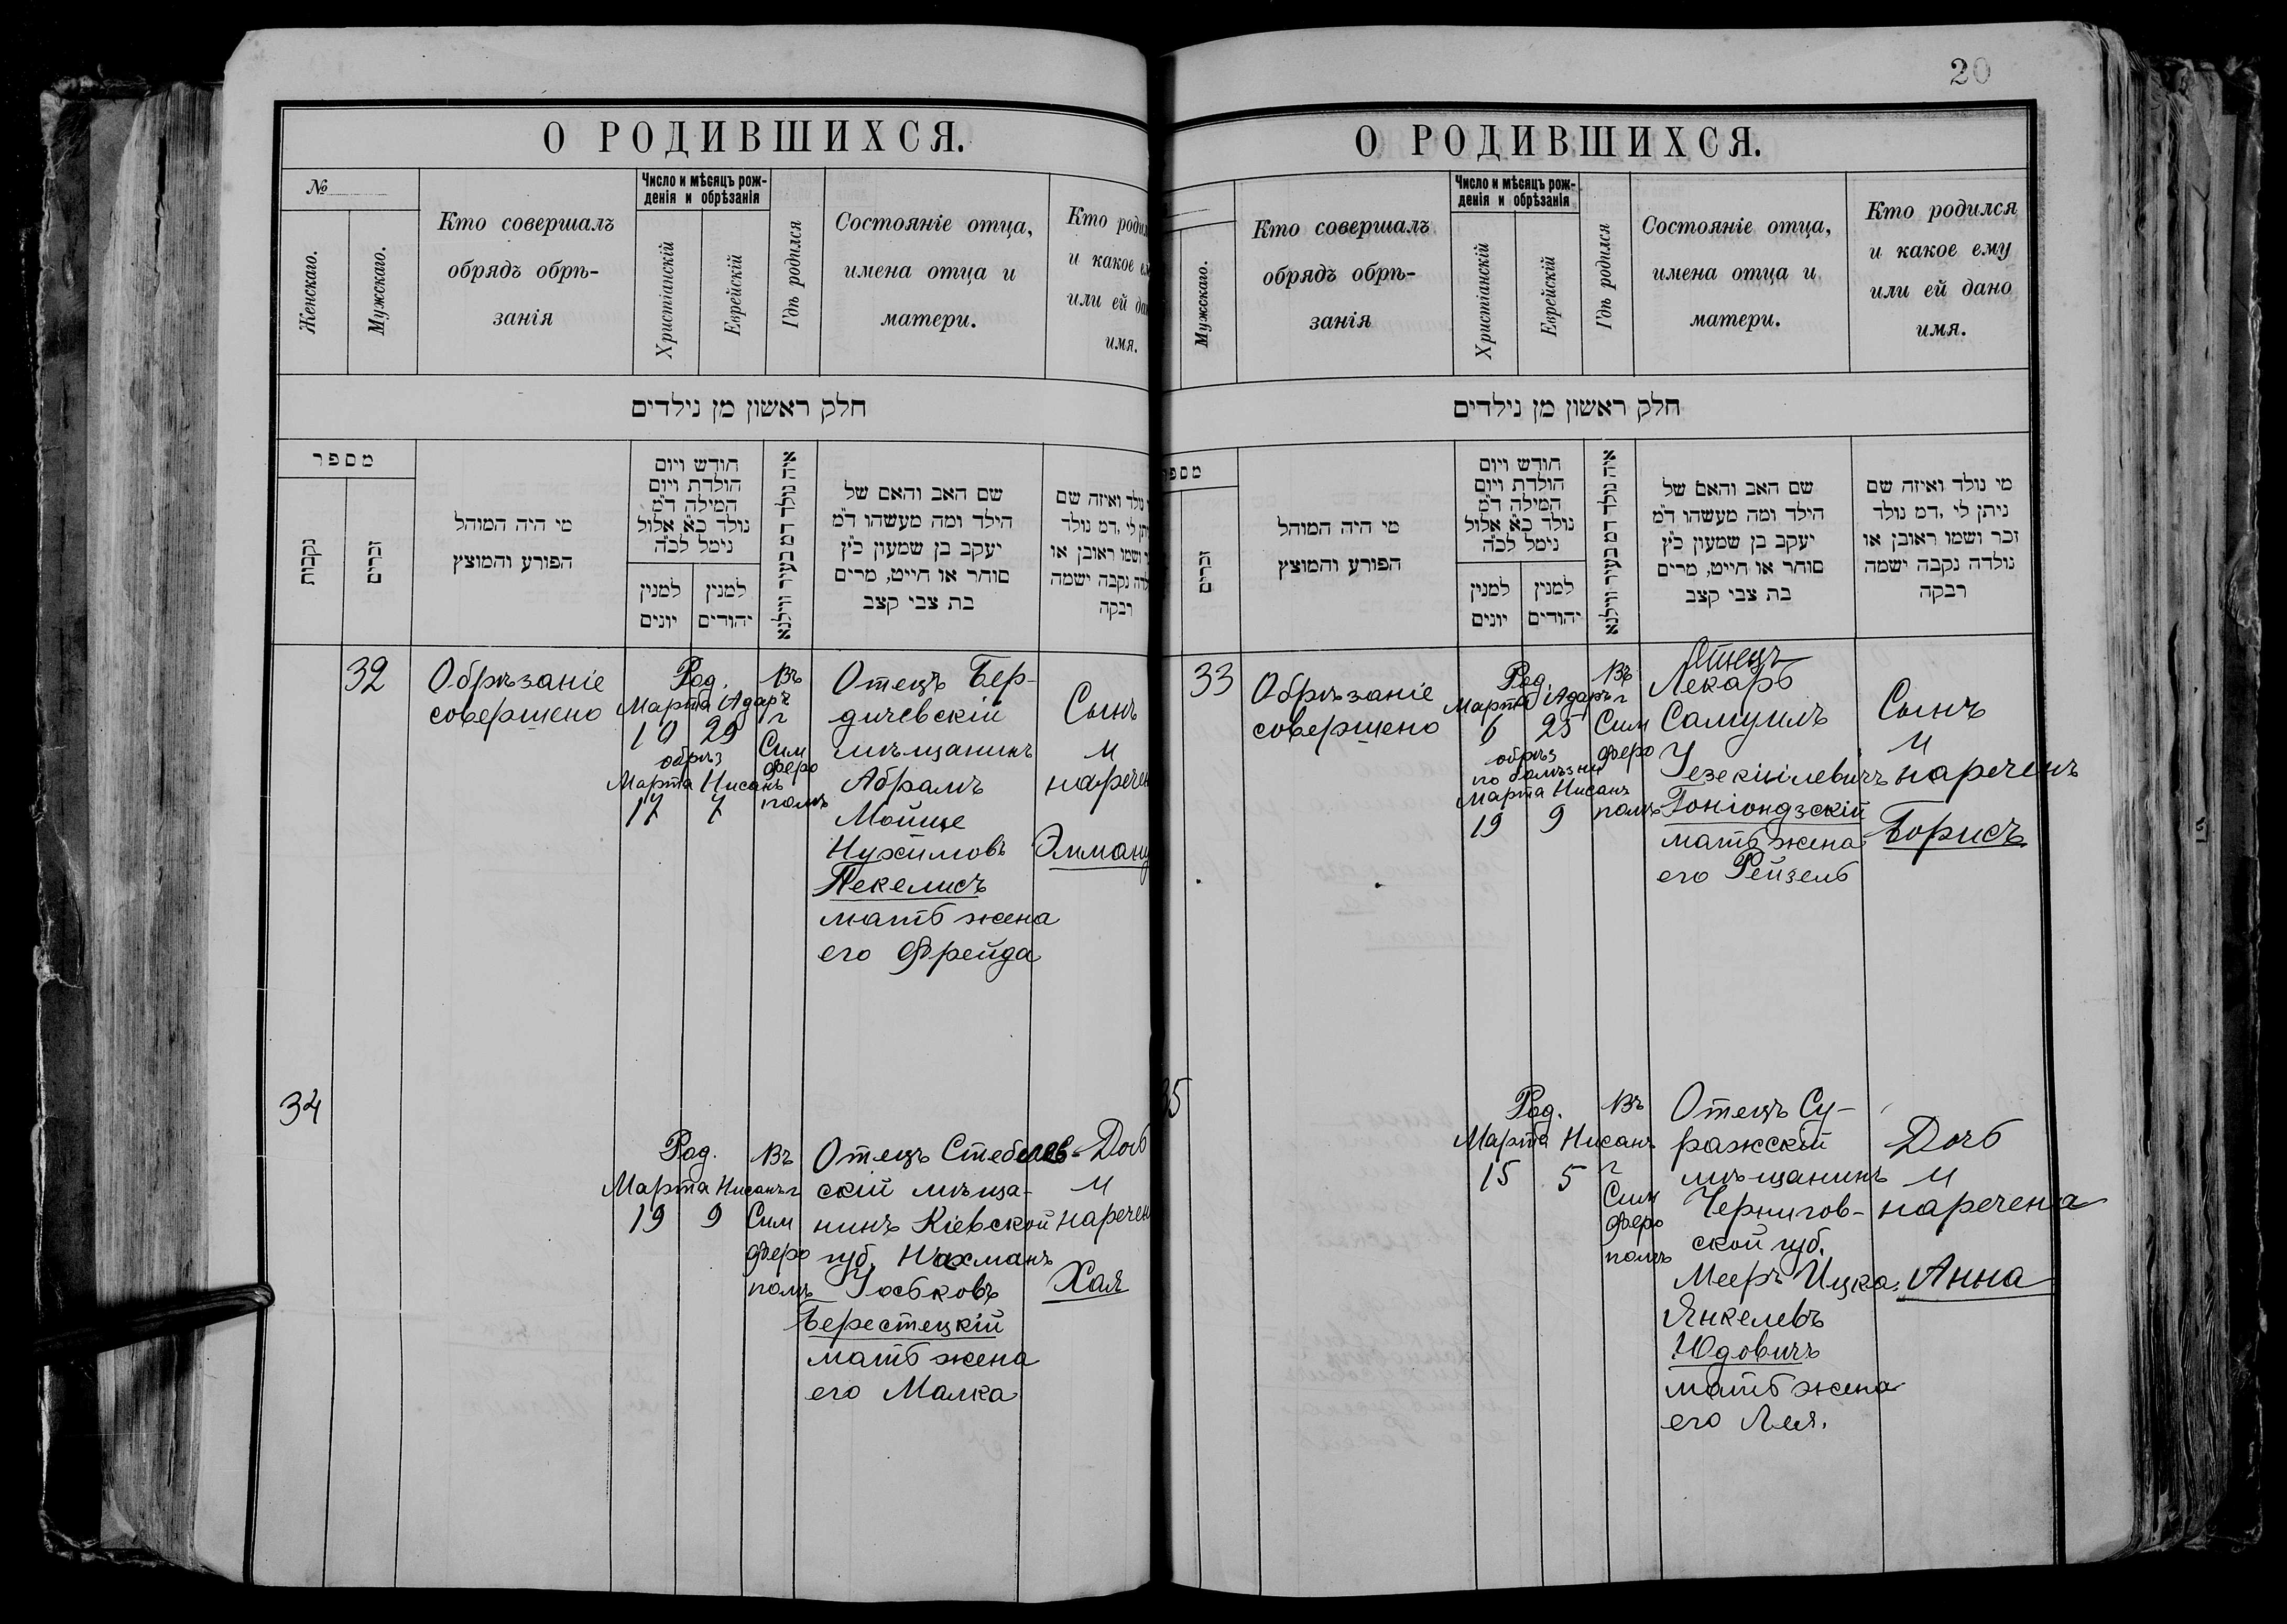 О РОДИВШИХСЯ.
№
Женскаго.
Мужскаго.
Кто совершалъ
обрядъ обрѣ-
занія
Число и мѣсяцъ рож-
денія и обрѣзанія
Христіанскій
Еврейскій
Гдѣ родился
Состояніе отца,
имена отца и
матери.
Кто родил
и какое ем
или ей дан
имя.
חלק ראשון מן נילדים
מספר
נקבות
זכרים
מי היה המוהל
הפורע והמוצץ
חודש ויום
הולדת ויום
המילה ד״מ
נולד כ״א אלול
נימל לכ״ה
למנין
יונים
למנין
יהודים
איה נולד דמ בעיר ווילנא
שם האב והאם של
הילד ומה מעשהו ד״מ
יעקב בן שמעון כ״ץ
סוחר או חייט, מרים
בת צבי קצב
נולד ואיזה שם
תן לי, דמ נולד
ושמו ראובן או
לדה נקבה ישמה
רבקה
32
Обрѣзаніе
совершено
Род.
Марта Адаръ
10 29
обрѣз
Марта Нисанъ
17 7
Въ
г
Сим
феро
полѣ
Отецъ Бер-
дичевскій
мѣщанинъ
Абрамъ
Мойше
Нухимовъ
Пекелисъ
мать жена
его Фрейда
Сынъ
и
наречен
Эмману
34
Род.
Марта Нисанъ
19 9
Въ
г
Сим
феро
полѣ
Отецъ Стеблев-
скій мѣща-
нинъ Кіевской
губ. Нахманъ
Іоськовъ
Берестецкій
мать жена
его Малка
Дочь
и
наречен
Хая
20
О РОДИВШИХСЯ.
Мужскаго.
Кто совершалъ
обрядъ обрѣ-
занія
Число и мѣсяцъ рож-
денія и обрѣзанія
Христіанскій
Еврейскій
Гдѣ родился
Состояніе отца,
имена отца и
матери.
Кто родился
и какое ему
или ей дано
имя.
חלק ראשון מן נילדים
מספר
זכרים
מי היה המוהל
הפורע והמוצץ
חודש ויום
הולדת ויום
המילה ד״מ
נולד כ״א אלול
נימל לכ״ה
למנין
יונים
למנין
יהודים
איה נולד דמ בעיר ווילנא
שם האב והאם של
הילד ומה מעשהו ד״מ
יעקב בן שמעון כ״ץ
סוחר או חייט, מרים
בת צבי קצב
מי נולד ואיזה שם
ניתן לי, דמ נולד
זכר ושמו ראובן או
נולדה נקבה ישמה
רבקה
33
Обрѣзаніе
совершено
Род.
Марта Адаръ
6 25
обрѣз
по болѣзни
Марта Нисанъ
19 9
Въ
г
Сим
феро
полѣ
Отецъ
Лекарь
Самуилъ
Іезекіилевичъ
Гоніондзскій
мать жена
его Рейзель
Сынъ
и
нареченъ
Борисъ
35
Род.
Марта Нисанъ
15 5
Въ
г
Сим
феро
полѣ
Отецъ Су-
ражскій
мѣщанинъ
Чернигов-
ской губ.
Мееръ Ицка
Янкелевъ
Юдовичъ
мать жена
его Лея.
Дочь
и
наречена
Анна